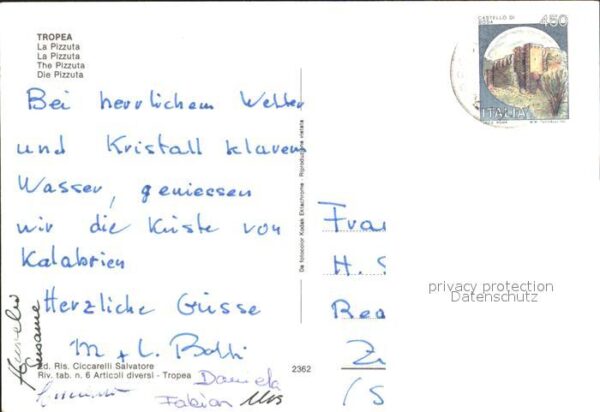 TROPEA
La Pizzuta
La Pizzuta
The Pizzuta
Die Pizzuta
CASTELLO DI
450
ITALIA
Bei herrlichem Wetter
und Kristall klarem
Wasser, geniessen
wir die Küste von
Kalabrien
Herzliche Grüsse
M + L.
Susanne
Daniela
Fabian
Ed. Ris. Ciccarelli Salvatore
Riv. tab. n. 6 Articoli diversi - Tropea
2362
Da fotocolor Kodak Ektachrome - Riproduzione vietata
Frau
H. S
Rea
Z
/S
privacy protection
Datenschutz